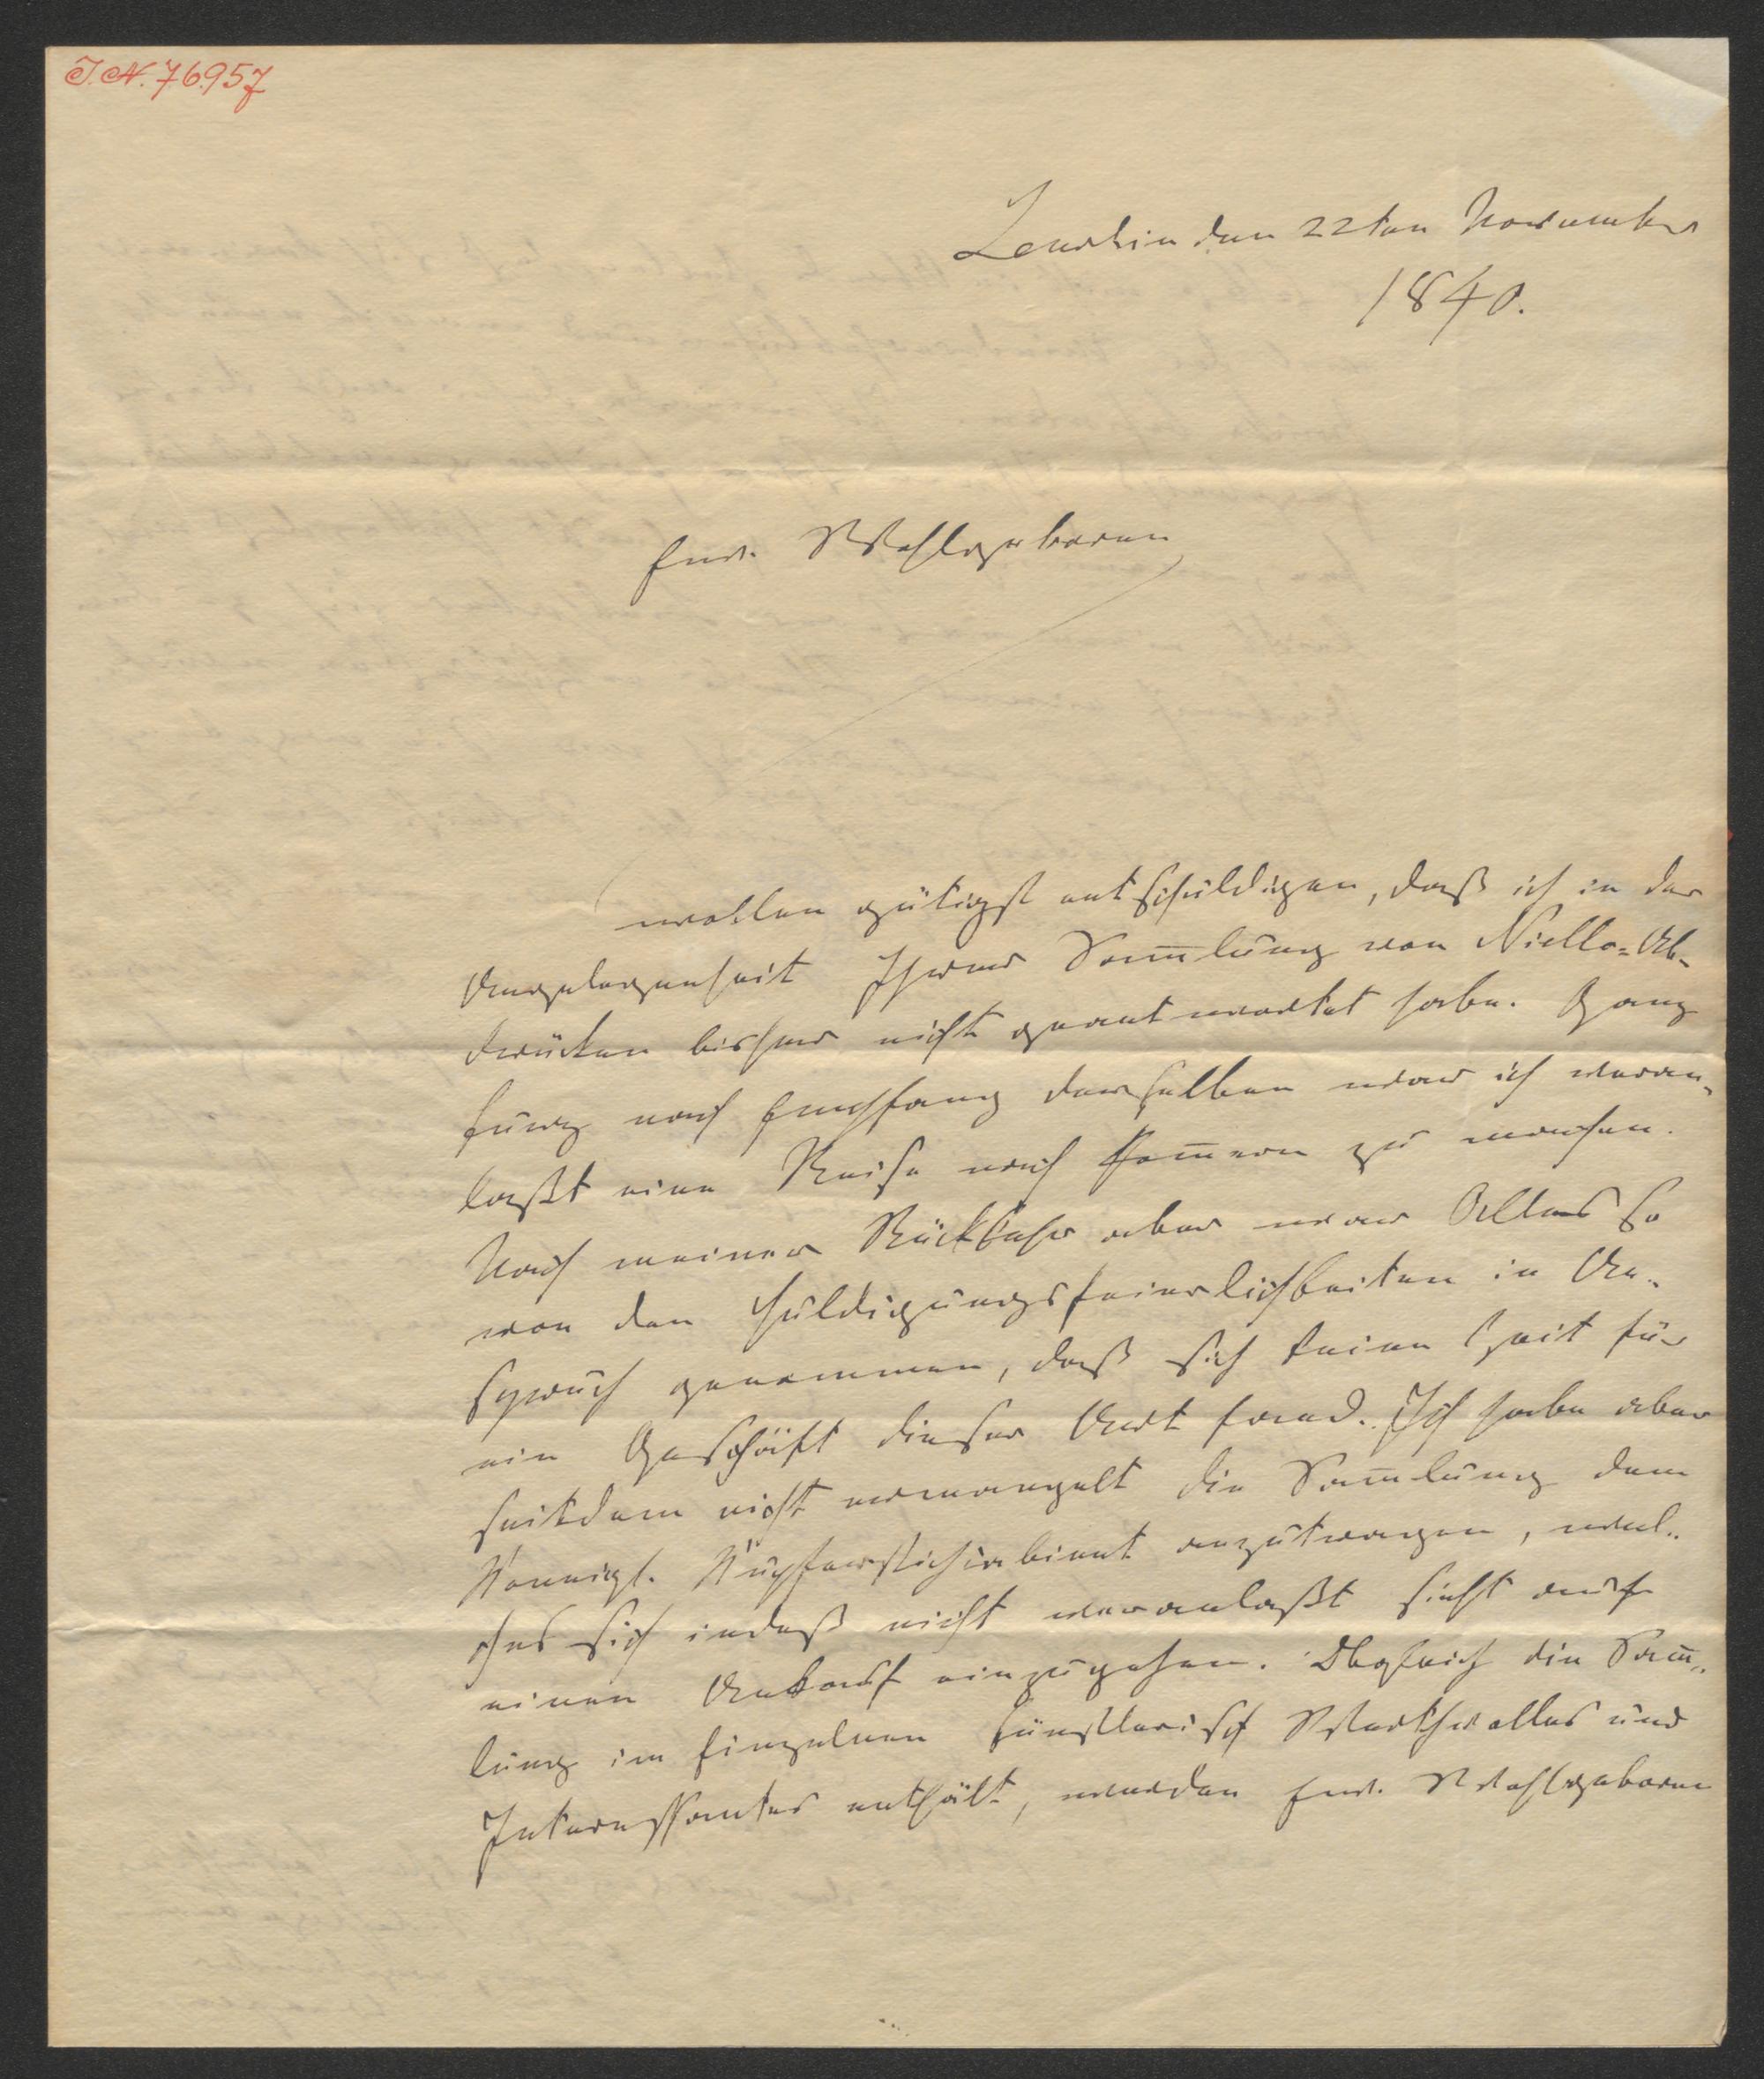 I.N. 76.957
Berlin den 22ten November
1840.
Ew. Wohlgeboren
wollen gütigst entschuldigen, daß ich in der
Angelegenheit Ihrer Som̅lung von Niello-Ab-
drücken bisher nicht geantwortet habe. Ganz
kurz nach Empfang derselben war ich veran-
laßt eine Reise nach Pom̅ern zu machen.
Nach meiner Rückkehr aber war Alles so
von den Huldigungsfeierlichkeiten in An-
spruch genommen, daß sich keine Zeit für
ein Geschäft dieser Art fand. Ich habe aber
seitdem nicht ermangelt die Sam̅lung dem
Koenigl. Kupferstichcabinet anzutragen, wel-
ches sich indeß nicht veranlaßt sieht auf
einen Ankauf einzugehen. Obgleich die Sam̅-
lung im Einzelnen künstlerisch Werthvolles und
Interessantes enthält, werden Ew. Wohlgeboren